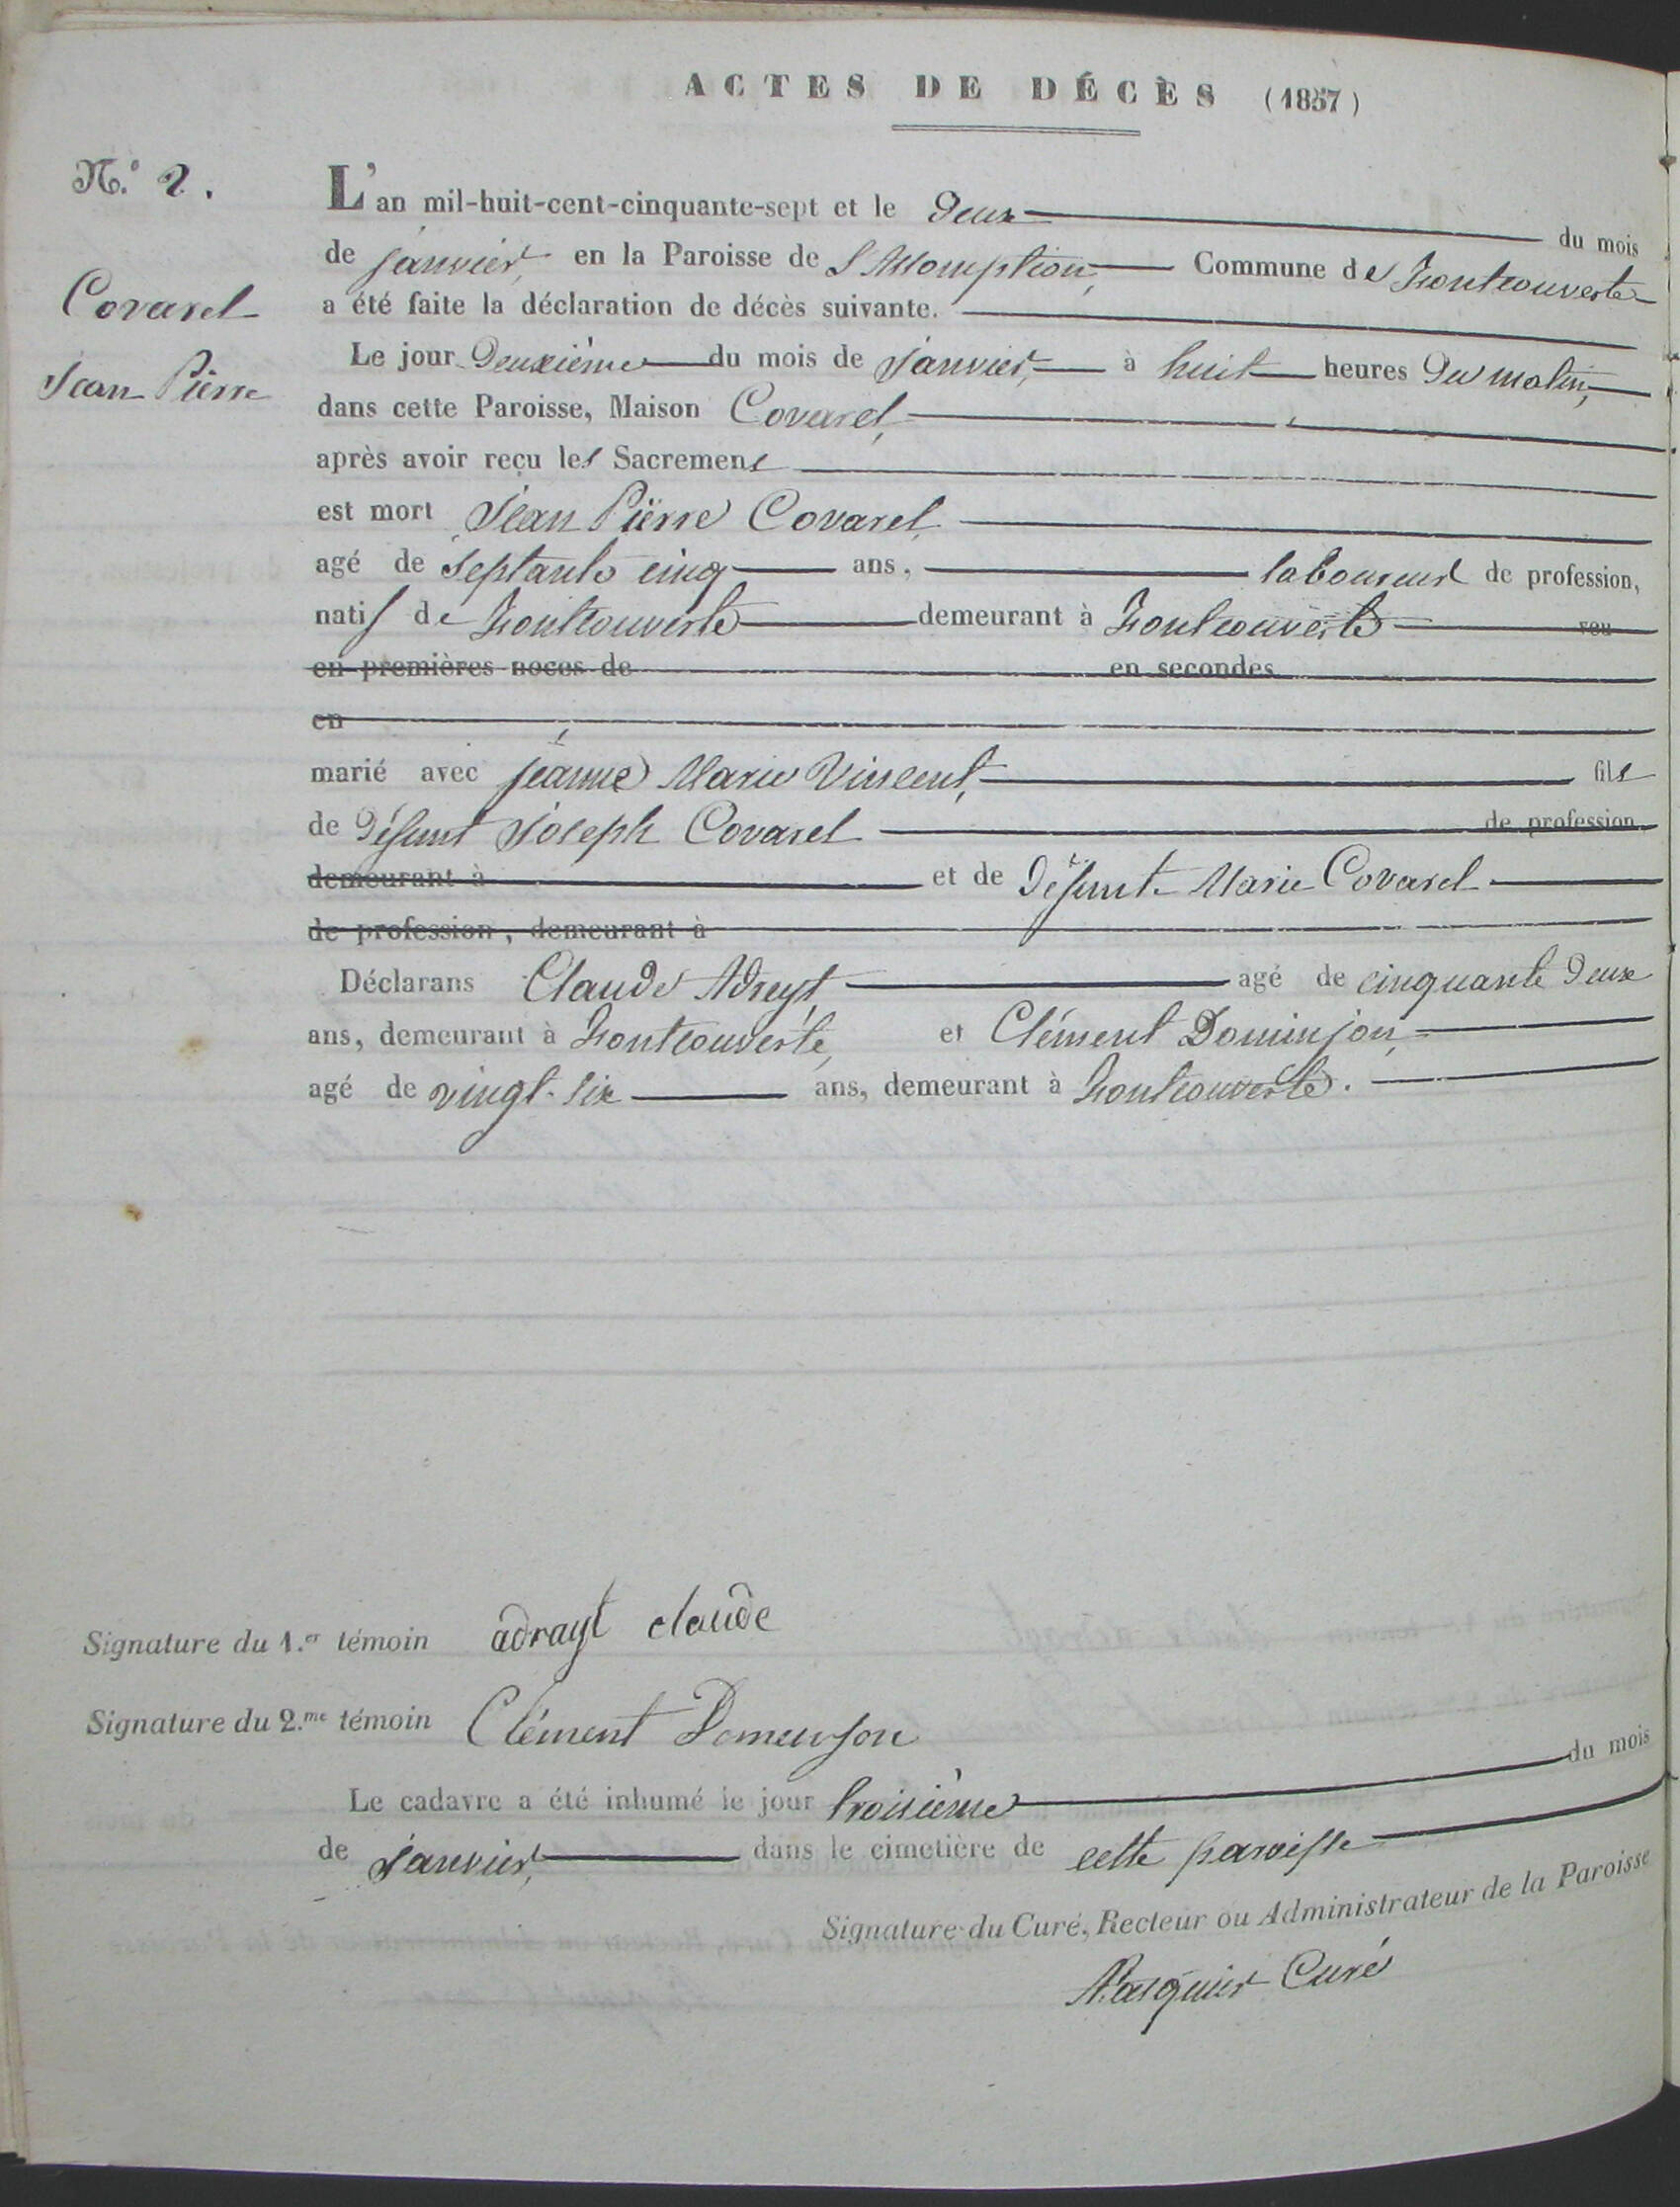 ACTES DE DÉCÈS (1857)
N.° 2.
L'an mil-huit-cent-cinquante-sept et le Deux du mois
de janvier, en la Paroisse de l'Assomption, Commune de Fontcouverte
Covarel
a été faite la déclaration de décès suivante.
Jean Pierre
Le jour Deuxième du mois de Janvier, à huit heures Du matin,
dans cette Paroisse, Maison Covarel,
après avoir reçu les Sacremens
est mort Jean Pierre Covarel,
agé de septante cinq ans, laboureur de profession,
natif de Fontcouverte demeurant à Fontcouverte veu
en premières noces de en secondes
en
marié avec jeanne Marie Vincent, fils
de Défunt Joseph Covarel de profession
demeurant à et de Défunte Marie Covarel
de profession, demeurant à
Déclarans Claude Adrayt agé de cinquante Deux
ans, demeurant à Fontcouverte, et Clément Dominjon,
agé de vingt-six ans, demeurant à Fontcouverte.
Signature du 1.er témoin adrayt claude
Signature du 2.me témoin Clément Domenjon
Le cadavre a été inhumé le jour troisième du mois
de Janvier, dans le cimetière de cette paroisse
Signature du Curé, Recteur ou Administrateur de la Paroisse
Pasquier Curé